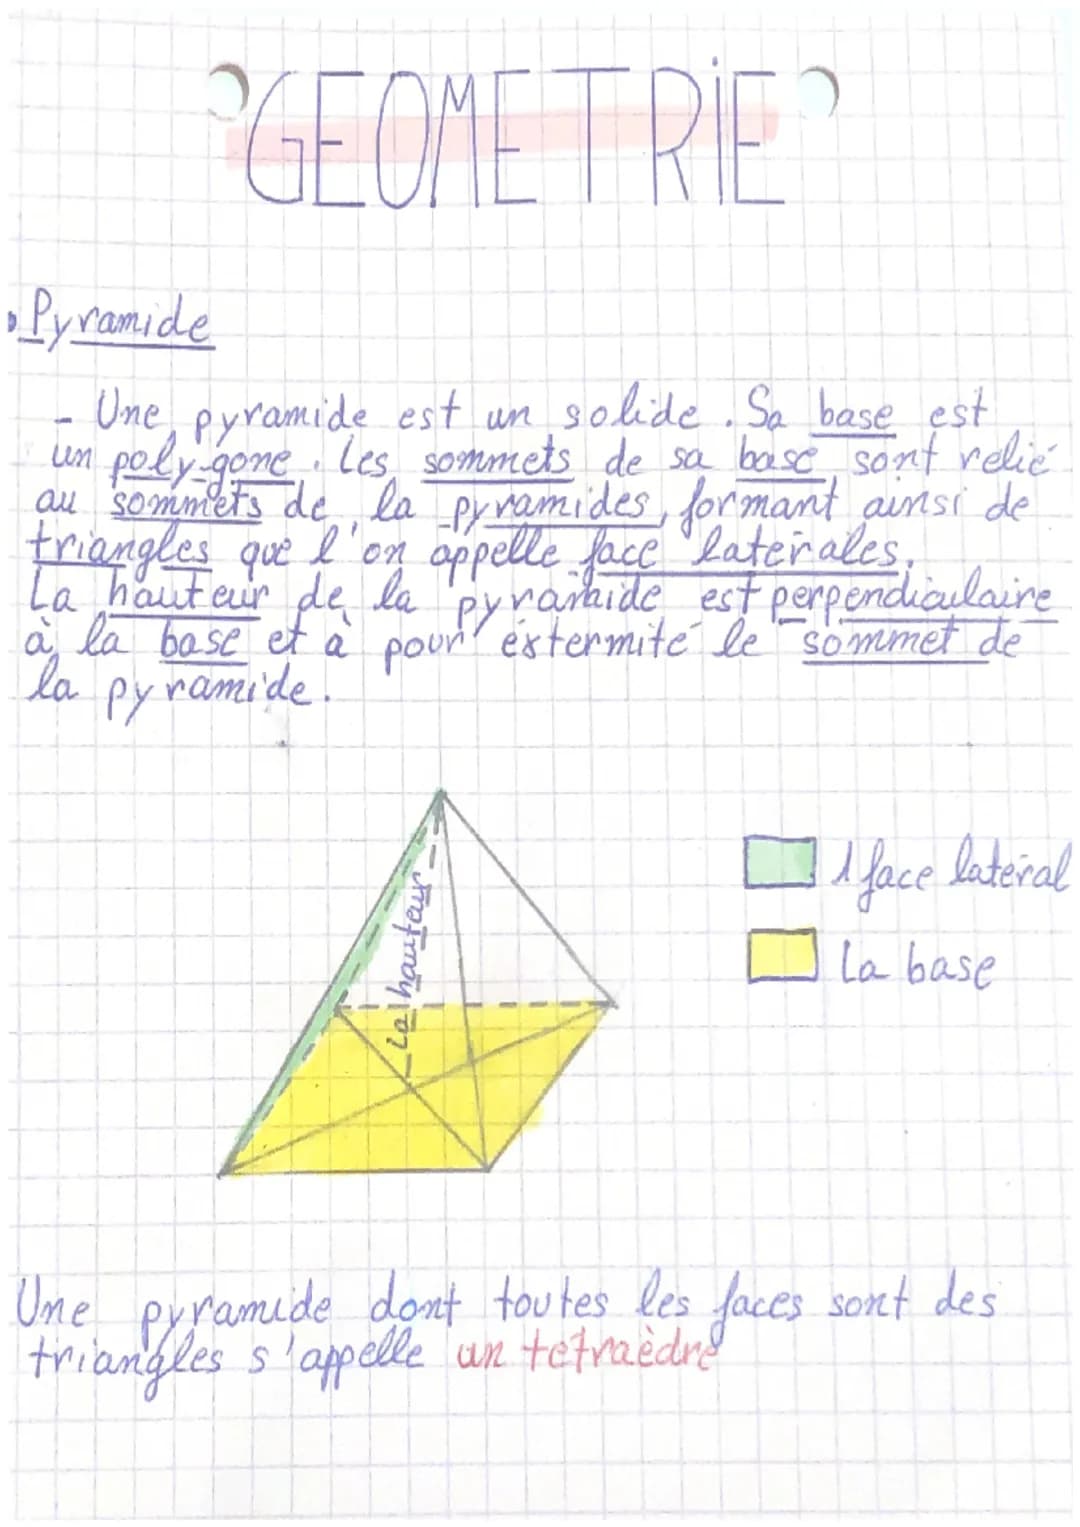 GEOMETRIE
Pyramide
- Une pyramide est un solide. Sa base est
un poly-gone. Les sommets de sa base sont relié
au sommets de la pyramides, formant ainsi de
triangles que l'on appelle face laterales.
La hauteur de la pyramide est perpendiculaire
à la base et à pour éxtermité le sommet de
la pyramide.
La hauteur
1 face lateral
La base
Une pyramide dont toutes les faces sont des
triangles s'appelle un tetraèdre